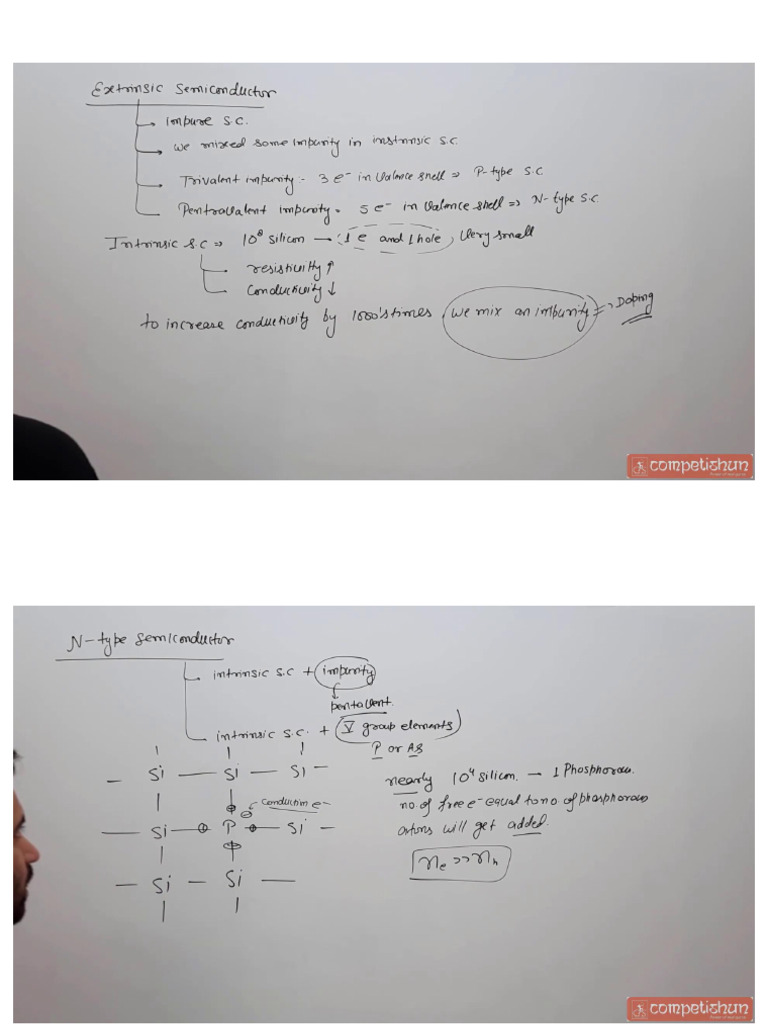 Extrinsic Semiconductor
Impure S.C.
We mixed some impurity in instrinsic S.C.
Trivalent impurity - 3 e⁻ in valence shell ⇒ P-type S.C
Pentravalent impurity - 5 e⁻ in valence shell ⇒ N-type S.C
Intrinsic S.C ⇒ 10⁸ silicon → 1 e and 1 hole, very small
resistivity ↑
Conductivity ↓
to increase conductivity by 1000's times, we mix an impurity ⇒ Doping
competishun
N-type Semiconductor
intrinsic S.C + impurity
pentavlent.
intrinsic S.C. + V group elements
P or AS
Si — Si — Si
nearly 10⁴ silicon. → 1 Phosphorous.
Conduction e⁻
no. of free e⁻ equal to no. of phosphorous
Si — P — Si
atoms will get added.
nₑ >> nₕ
Si — Si —
competishun